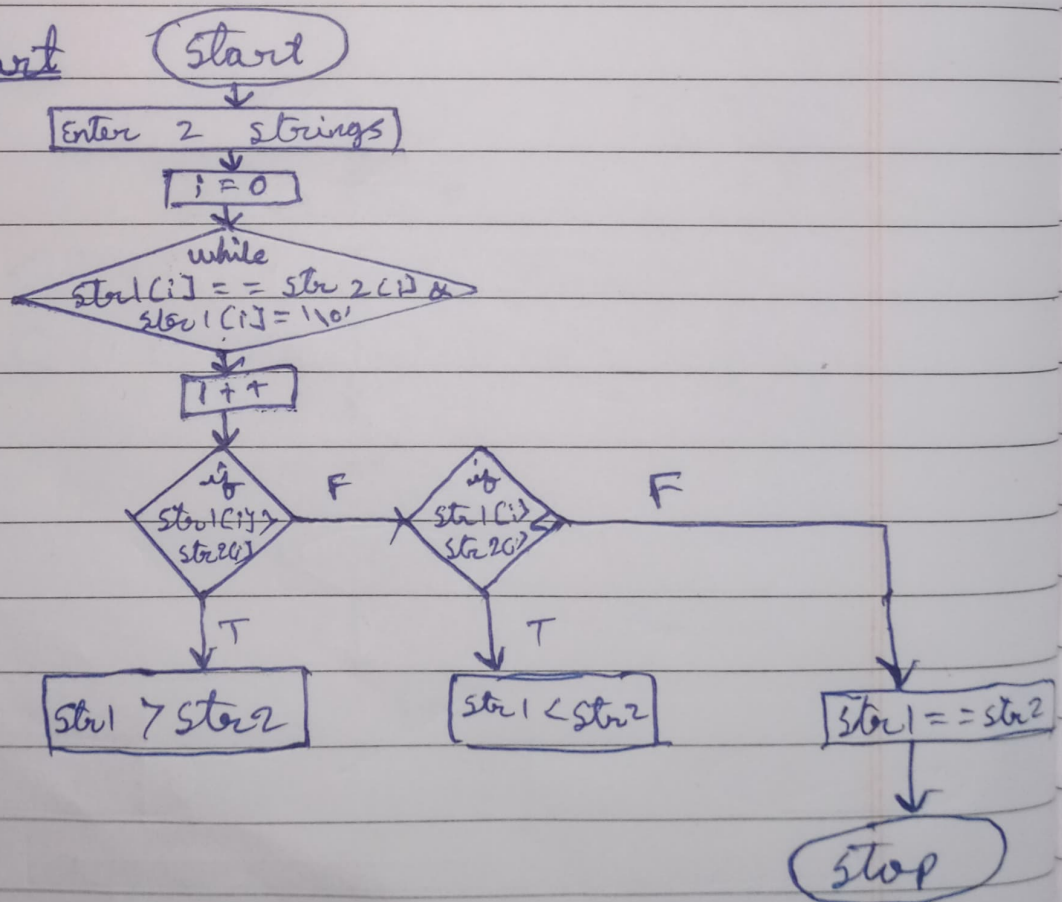 art
Start
Enter 2 strings
i = 0
while
str1[i] == str2[i] &
str1[i] = '\0'
i++
if
str1[i] >
str2[i]
F
if
str1[i] <
str2[i]
F
T
T
str1 > str2
str1 < str2
str1 == str2
Stop